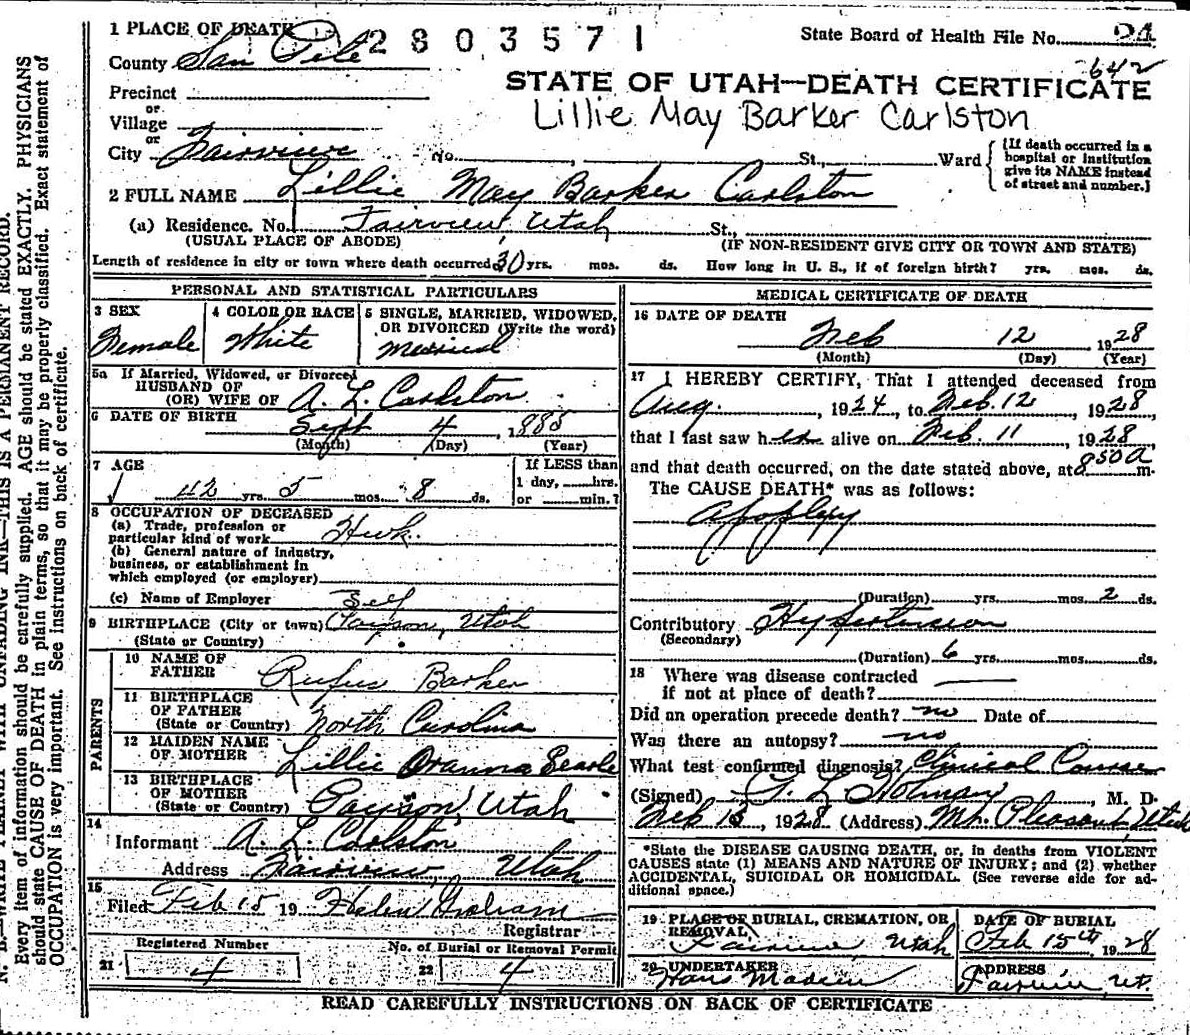 1 PLACE OF DEATH 2803571 State Board of Health File No. 24
County San Pete 642
STATE OF UTAH—DEATH CERTIFICATE
Precinct
or
Village
Lillie May Barker Carlston
or
City Fairview No. , St., Ward
(If death occurred in a hospital or institution give its NAME instead of street and number.)
2 FULL NAME Lillie May Barker Carlston
(a) Residence. No. Fairview, Utah St.,
(USUAL PLACE OF ABODE) (IF NON-RESIDENT GIVE CITY OR TOWN AND STATE)
Length of residence in city or town where death occurred 30 yrs. mos. ds. How long in U. S., if of foreign birth? yrs. mos. ds.
PERSONAL AND STATISTICAL PARTICULARS
3 SEX 4 COLOR OR RACE 5 SINGLE, MARRIED, WIDOWED,
OR DIVORCED (Write the word)
Female White Married
5a If Married, Widowed, or Divorced
HUSBAND OF
(OR) WIFE OF A. L. Carlston
6 DATE OF BIRTH Sept 4, 1885
(Month) (Day) (Year)
7 AGE If LESS than
1 day, hrs.
42 yrs. 5 mos. 8 ds. or min.?
8 OCCUPATION OF DECEASED
(a) Trade, profession or
particular kind of work Hwk.
(b) General nature of industry,
business, or establishment in
which employed (or employer)
(c) Name of Employer Self
9 BIRTHPLACE (City or town) Payson, Utah
(State or Country)
PARENTS
10 NAME OF
FATHER Rufus Barker
11 BIRTHPLACE
OF FATHER
(State or Country) North Carolina
12 MAIDEN NAME
OF MOTHER Lillie Oranna Searle
13 BIRTHPLACE
OF MOTHER
(State or Country) Payson, Utah
14
Informant A. L. Carlston
Address Fairview, Utah
15
Filed Feb 15 19 Helen Graham
Registrar
Registered Number No. of Burial or Removal Permit
21 4 22 4
MEDICAL CERTIFICATE OF DEATH
16 DATE OF DEATH
Feb 12 1928
(Month) (Day) (Year)
17 I HEREBY CERTIFY, That I attended deceased from
Aug. , 1924, to Feb. 12, 1928
that I last saw her alive on Feb. 11, 1928,
and that death occurred, on the date stated above, at 850 a m.
The CAUSE DEATH* was as follows:
Apoplexy
(Duration) yrs. mos. 2 ds.
Contributory Hypertension
(Secondary)
(Duration) 6 yrs. mos. ds.
18 Where was disease contracted
if not at place of death?
Did an operation precede death? no Date of
Was there an autopsy? no
What test confirmed diagnosis? Clinical Course
(Signed) Holman, M. D.
Feb 15, 1928 (Address) Mt. Pleasant, Utah
*State the DISEASE CAUSING DEATH, or, in deaths from VIOLENT
CAUSES state (1) MEANS AND NATURE OF INJURY; and (2) whether
ACCIDENTAL, SUICIDAL OR HOMICIDAL. (See reverse side for ad-
ditional space.)
19 PLACE OF BURIAL, CREMATION, OR DATE OF BURIAL
REMOVAL
Fairview, Utah Feb 15th 1928
20 UNDERTAKER ADDRESS
Hans Madsen Fairview, Ut.
READ CAREFULLY INSTRUCTIONS ON BACK OF CERTIFICATE
N. B.—WRITE PLAINLY WITH UNFADING INK—THIS IS A PERMANENT RECORD.
Every item of information should be carefully supplied. AGE should be stated EXACTLY. PHYSICIANS
should state CAUSE OF DEATH in plain terms, so that it may be properly classified. Exact statement of
OCCUPATION is very important. See instructions on back of certificate.